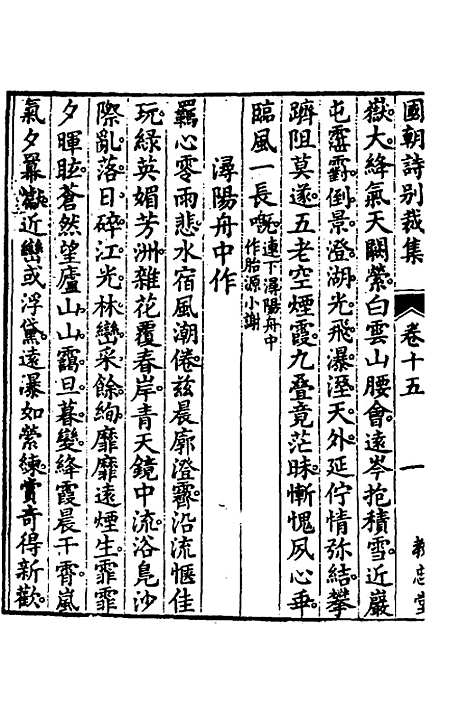 國朝詩別裁集 卷十五 一 教忠堂
嶽大絳氣天關縈白雲山腰會遠岑抱積雪近巖
屯靈霨倒景澄湖光飛瀑溼天外延佇情彌結攀
躋阻莫遂五老空煙霞九疊竟茫昧慚愧夙心乖
臨風一長嘅連下潯陽舟中
作胎源小謝
潯陽舟中作
羈心零雨悲水宿風潮倦茲晨廓澄霽沿流愜佳
玩綠英媚芳洲雜花覆春岸青天鏡中流浴鳧沙
際亂落日碎江光林巒采餘絢靡靡遠煙生霏霏
夕暉眩蒼然望廬山山靄旦暮變絳霞晨干霄嵐
氣夕羃巘近巒或浮黛遠瀑如縈練賞奇得新歡